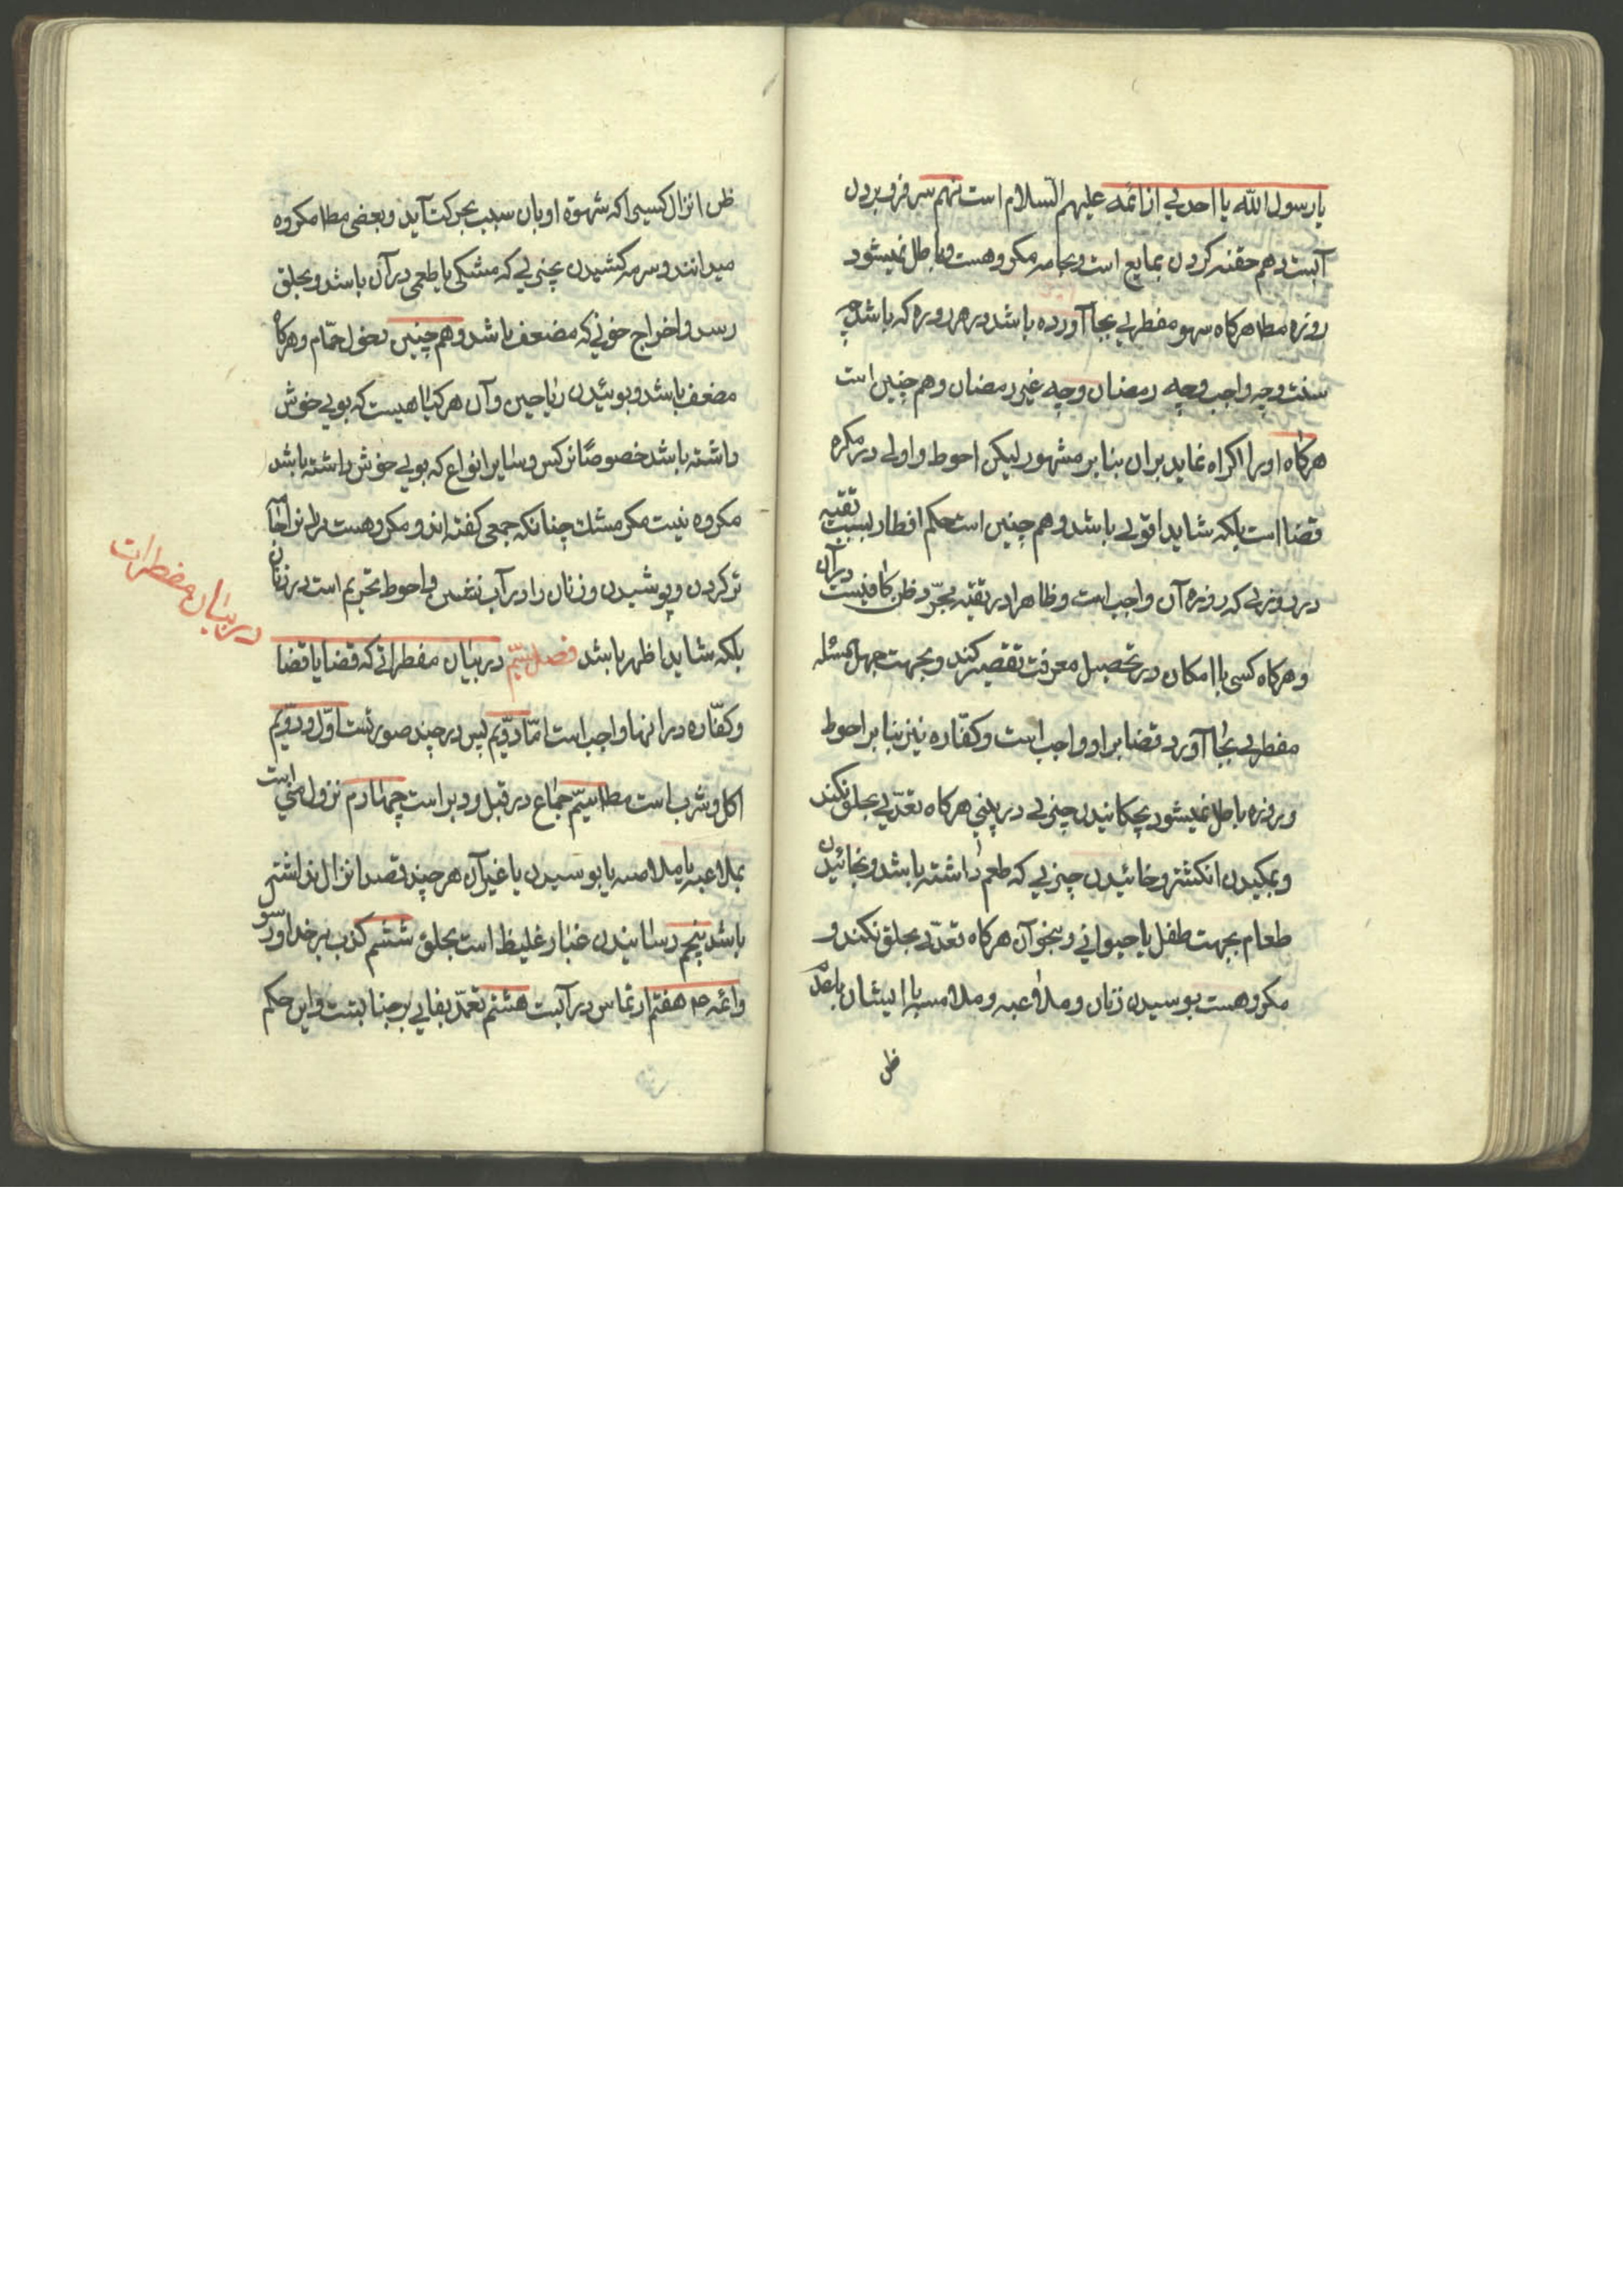 یا رسول الله یا احدی از ائمه علیهم السلام است نهم سر فرو بردن
آبست دهم حقنه کردن بمایع است و بجامد مکروهست و باطل نمیشود
روزه مطا هرکاه سهو مفطری بجا آورده باشد در هر روزه که باشد چه
سنت و چه واجب و چه رمضان و چه غیر رمضان و هم چنین است
هرکاه او را اکراه نماید بران بنابر مشهور لیکن احوط و اولی در مکره
قضا است بلکه شاید اقوی باشد و هم چنین است حکم افطار بسبب تقیه
در روزی که روزه آن واجب است و ظاهرا در تقیه مجرّد ظن کافیست در آن
و هرکاه کسی با امکان در تحصیل معرفت تقصیر کند و بجهت جهل بمسئله
مفطری بجا آورد قضا بر او واجب است و کفّاره نیز بنابر احوط
و روزه باطل نمیشود بچکانیدن چیزی در بینی هرکاه تعدّی بحلق نکند
و بمکیدن انکشتر و خائیدن چیزی که طعم داشته باشد و بخائیدن
طعام بجهت طفل یا حیوانی و بنحو آن هرکاه تعدّی بحلق نکند و
مکروهست بوسیدن زنان و ملاعبه و ملامسه با ایشان با عدم
ظن
ظن انزال کسیرا که شهوة او بان سبب بحرکت آید و بعضی مطا مکروه
میدانند و سرمه کشیدن بچیزی که مشکی یا طعمی در آن باشد و بحلق
رسد و اخراج خونی که مضعف باشد و هم چنین دخول حمّام و هرکاه
مضعف باشد و بوئیدن ریاحین و آن هر کیاهیست که بوی خوش
داشته باشد خصوصًا نرکس و سایر انواع که بوی خوش داشته باشد
مکروه نیست مکر مشك چنانکه جمعی کفته اند و مکروهست
تر کردن و پوشیدن و زنان را در آب نشستن و احوط تحریم است در زنان
بلکه شاید اظهر باشد فصل سیّم در بیان مفطراتی که قضا یا قضا
و کفّاره در انها واجب است امّا دوّیم پس در چند صورتست اوّل و دوّیم
اکل و شرب است مطا سیّم جماع در قبل و دبر است چهارم نزول منی است
بملاعبه یا ملامسه یا بوسیدن یا غیر آن هر چند قصد انزال نداشته
باشد پنجم رسانیدن غبار غلیظ است بحلق ششم کذب بر خدا و رسول
و ائمه هفتم ارتماس در آبست هشتم تعمّد بقای بر جنابتست و این حکم
در بیان مفطرات